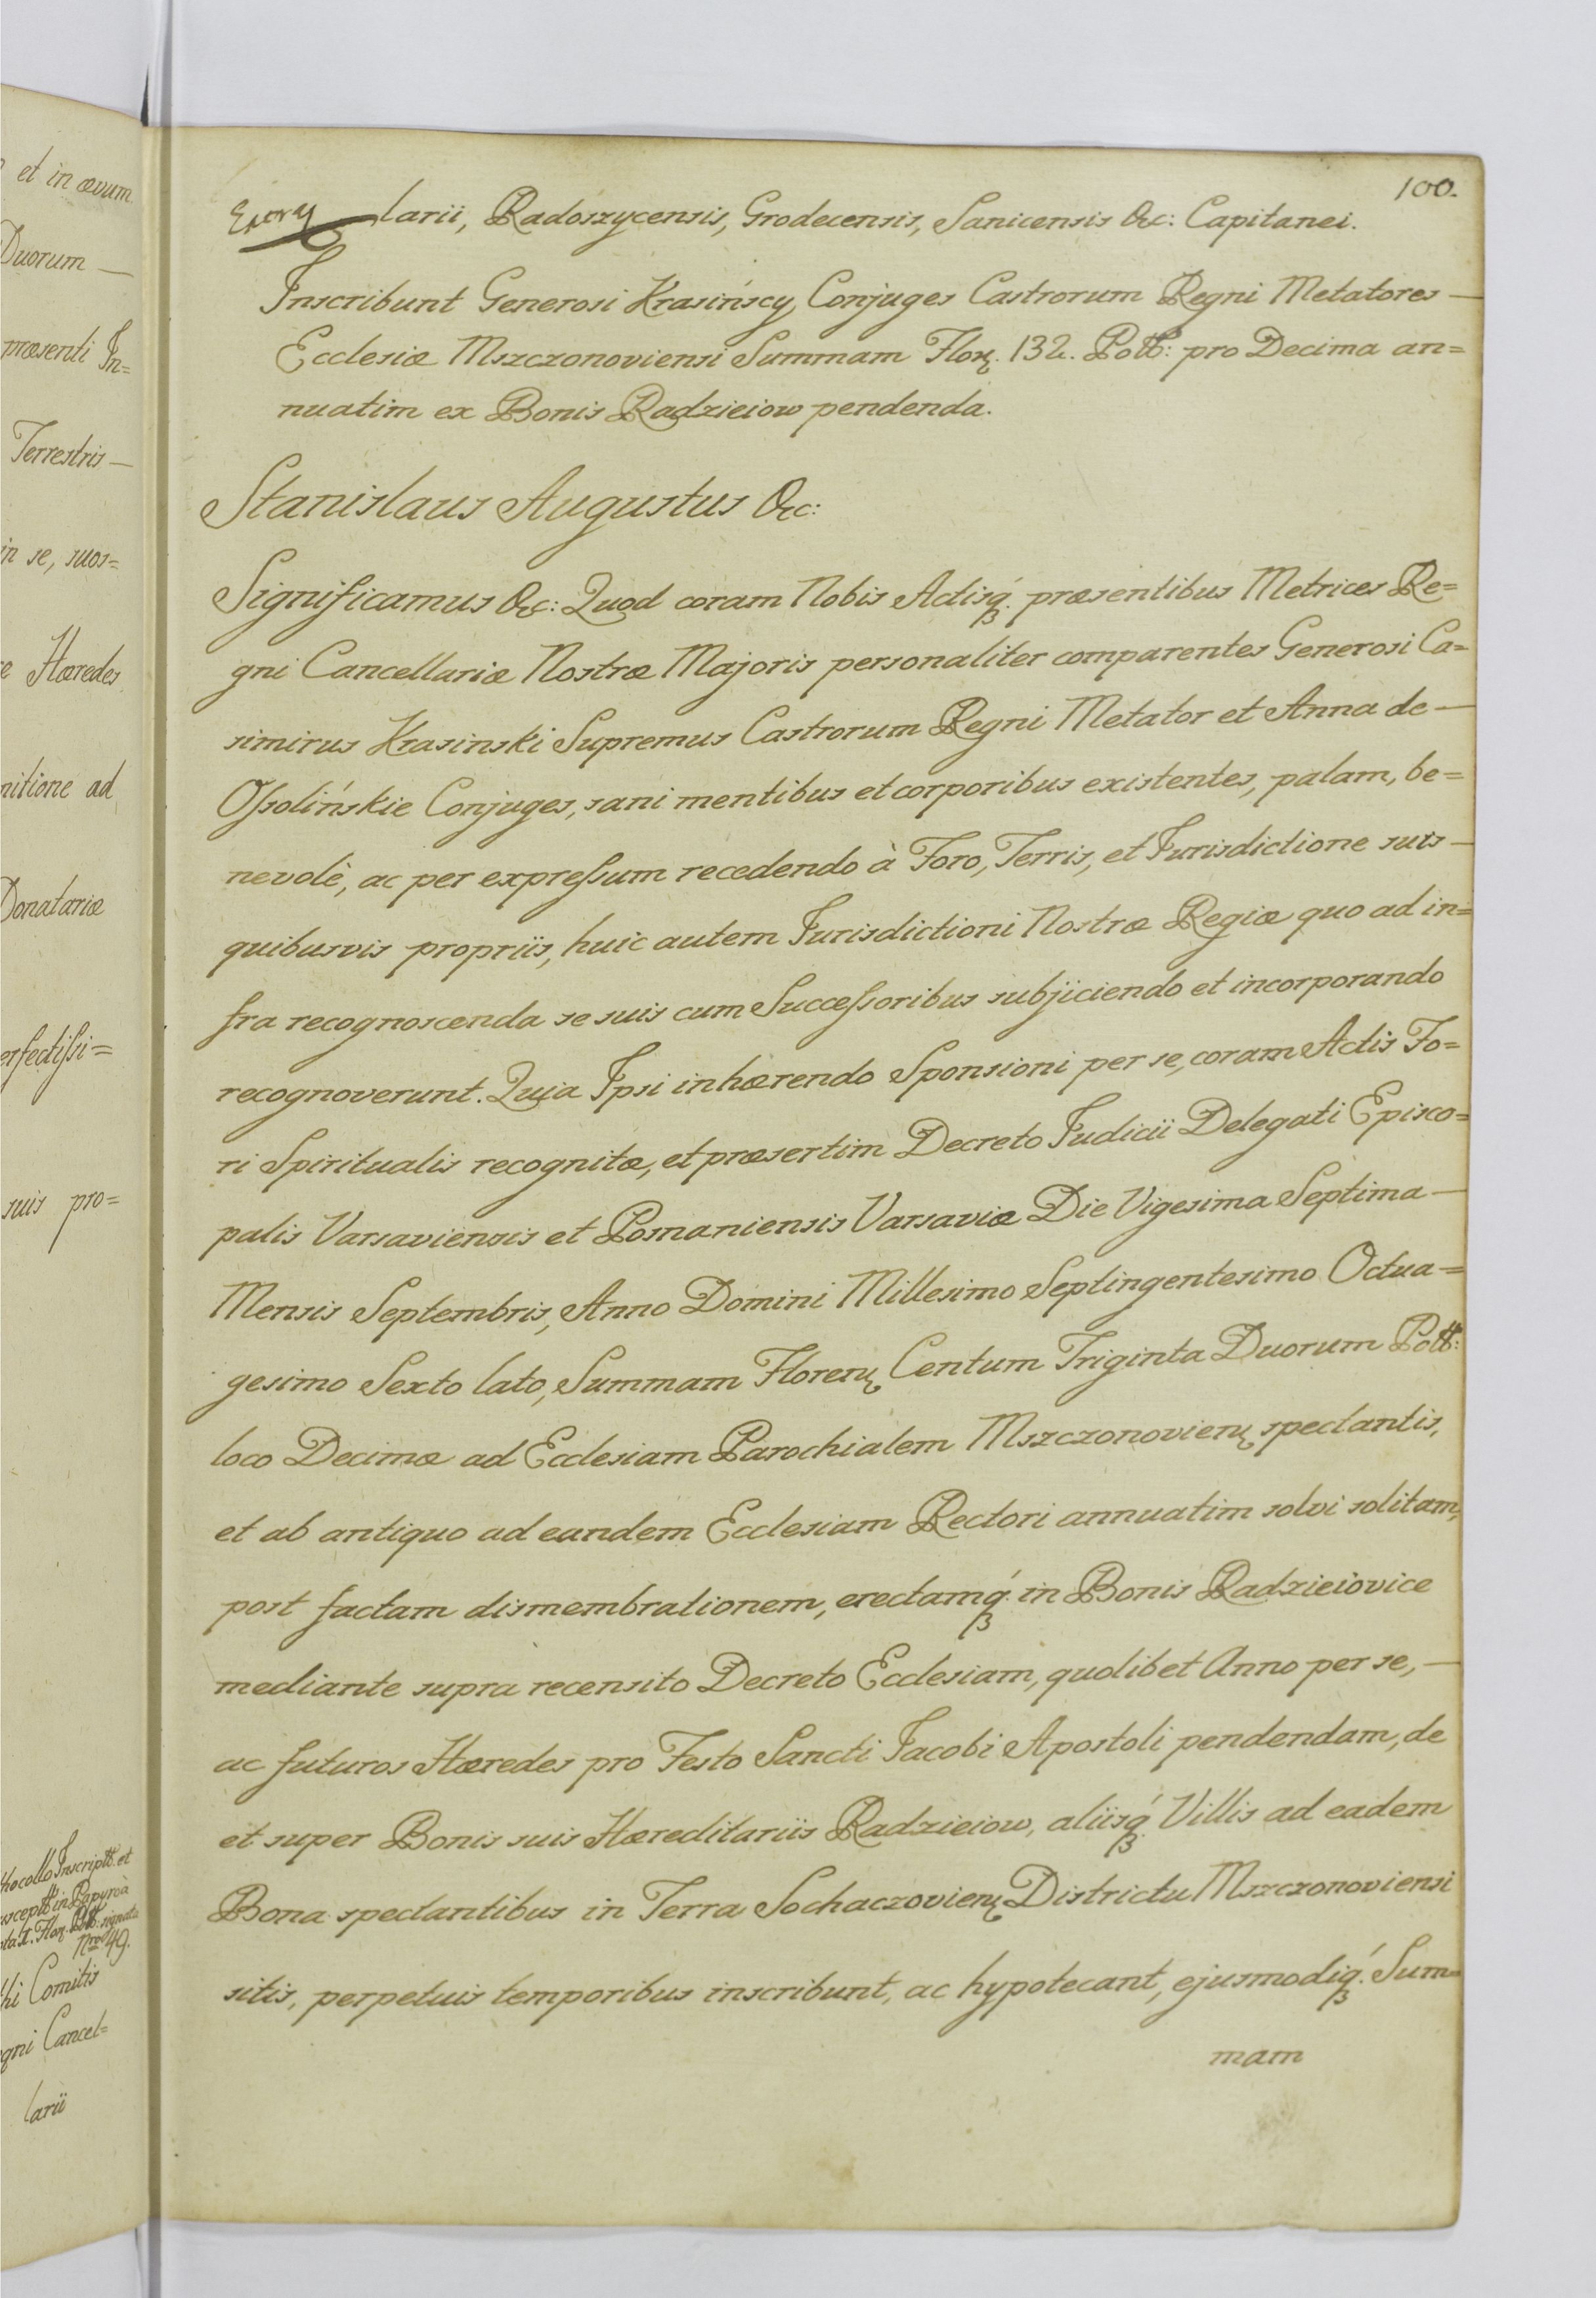 et in ævum
Duorum —
præsenti In=
Terrestris —
in se, suos=
Hæredes
nitione ad
Donatariæ
erfectissi=
suis pro=
thocollo Inscriptt. et
usceptt. in Papyro à
Nro 49.
hi Comitis
gni Cancel=
larii
100.
larii, Radoszycensis, Grodecensis, Sanicensis &c: Capitanei.
Inscribunt Generosi Krasińscy, Conjuges Castrorum Regni Metatores —
Ecclesiæ Mszczonoviensi Summam Flor. 132. Pollt: pro Decima an=
nuatim ex Bonis Radzieiow pendenda.
Stanislaus Augustus &c:
Significamus &c: Quod coram Nobis Actisq́ꝫ præsentibus Metrices Re=
gni Cancellariæ Nostræ Majoris personaliter comparentes Generosi Ca=
simirus Krasinski Supremus Castrorum Regni Metator et Anna de —
Ossolińskie Conjuges, sani mentibus et corporibus existentes, palam, be=
nevolè, ac per expressum recedendo à Foro, Terris, et Iurisdictione suis —
quibusvis propriis, huic autem Iurisdictioni Nostræ Regiæ quo ad in=
fra recognoscenda se suis cum Successoribus subjiciendo et incorporando
recognoverunt. Quia Ipsi inhærendo Sponsioni per se, coram Actis Fo=
ri Spiritualis recognitæ, et præsertim Decreto Iudicii Delegati Episco=
palis Varsaviensis et Posnaniensis Varsaviæ Die Vigesima Septima —
Mensis Septembris, Anno Domini Millesimo Septingentesimo Octua=
gesimo Sexto lato, Summam Floren. Centum Triginta Duorum Pollt:
loco Decimæ ad Ecclesiam Parochialem Mszczonovien. spectantis,
et ab antiquo ad eandem Ecclesiam Rectori annuatim solvi solitam,
post factam dismembrationem, erectamq́ꝫ in Bonis Radzieiovice
mediante supra recensito Decreto Ecclesiam, quolibet Anno per se, —
ac futuros Hæredes pro Festo Sancti Iacobi Apostoli pendendam, de
et super Bonis suis Hæreditariis Radzieiow, aliisq́ꝫ Villis ad eadem
Bona spectantibus in Terra Sochaczovien. Districtu Mszczonoviensi
sitis, perpetuis temporibus inscribunt, ac hypotecant, ejusmodiq́ꝫ Sum=
mam